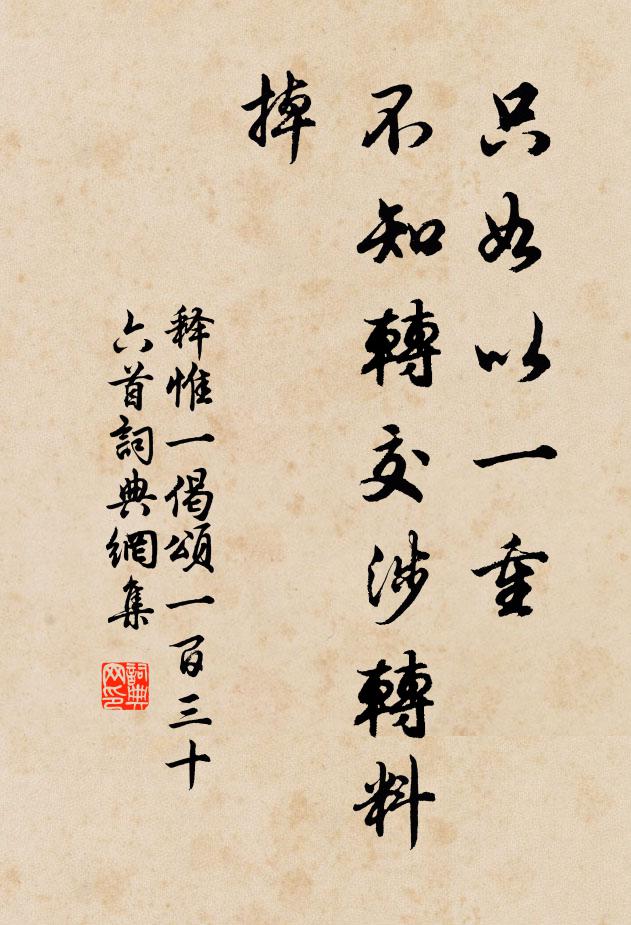 只如以一重
不知轉交涉轉料
掉
释惟一偈頌一百三十
六首詞典網集
詞典
网印